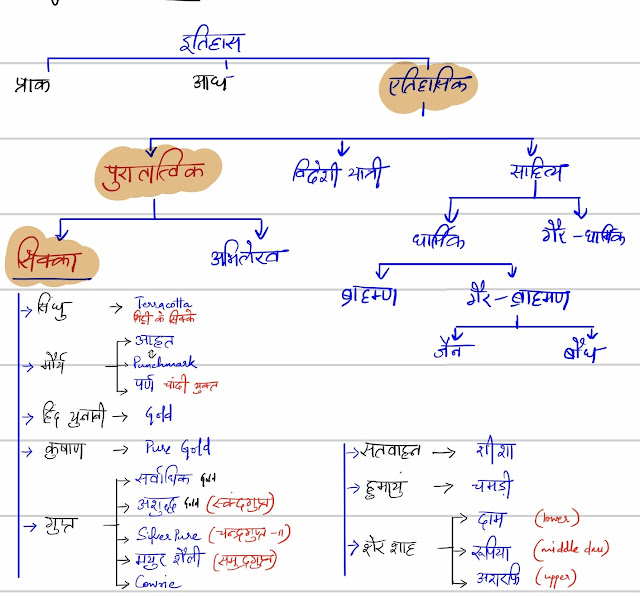 इतिहास
प्राक आध ऐतिहासिक
पुरातात्विक विदेशी यात्री साहित्य
सिक्का अभिलेख धार्मिक गैर-धार्मिक
ब्राह्मण गैर-ब्राहमण
जैन बौध
सिंधु → Terracotta
मिट्टी के सिक्के
मौर्य
आहत
Punchmark
पर्ण चांदी युक्त
हिंद युनानी → Gold
कुषाण → Pure Gold
गुप्त
सर्वाधिक Gold
अशुद्ध Gold (स्कंदगुप्त)
Silver Pure (चन्द्रगुप्त-II)
मयुर शैली (समुद्रगुप्त)
Cowrie
सतवाहन → शीशा
हुमायुं → चमड़ी
शेर शाह
दाम (lower)
रूपिया (middle class)
अशरफि (upper)